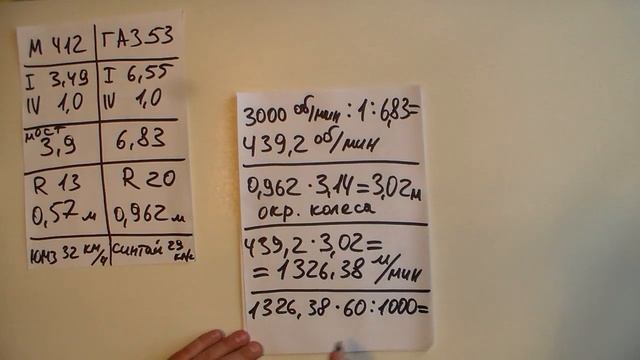 М 412 ГАЗ 53
I 3,49 I 6,55
IV 1,0 IV 1,0
мост 3,9 6,83
R 13 R 20
0,57 м 0,962 м
ЮМЗ 32 км/ч синтай 29 км/ч
3000 об/мин : 1 : 6,83 =
439,2 об/мин
0,962 · 3,14 = 3,02 м
окр. колеса
439,2 · 3,02 =
= 1326,38 м/мин
1326,38 · 60 : 1000 =